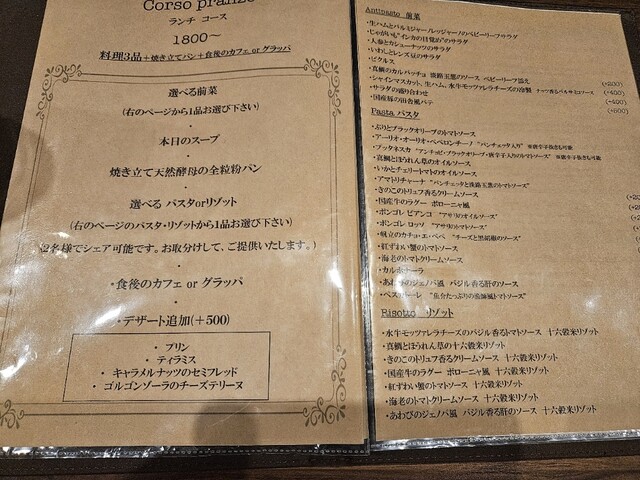 Corso pranzo
ランチ コース
1800〜
料理3品+焼き立てパン+食後のカフェ or グラッパ
選べる前菜
(右のページから1品お選び下さい)
・
本日のスープ
・
焼き立て天然酵母の全粒粉パン
・
選べる パスタorリゾット
(右のページのパスタ・リゾットから1品お選び下さい)
(2名様でシェア可能です。お取分けして、ご提供いたします。)
・
・食後のカフェ or グラッパ
・
・デザート追加(+500)
・ プリン
・ ティラミス
・ キャラメルナッツのセミフレッド
・ ゴルゴンゾーラのチーズテリーヌ
Antipasto 前菜
・生ハムとパルミジャーノレッジャーノのベビーリーフサラダ
・じゃがいも"インカの目覚め"のサラダ
・人参とカシューナッツのサラダ
・いわしとレンズ豆のサラダ
・ピクルス
・真鯛のカルパッチョ 淡路玉葱のソース ベビーリーフ添え
・シャインマスカット、生ハム、水牛モッツァレラチーズの冷製 ナッツ香るバルサミコソース
・サラダの盛り合わせ (+400)
・国産豚の田舎風パテ (+400)
(+600)
Pasta パスタ
・ぶりとブラックオリーブのトマトソース
・アーリオ・オーリオ・ペペロンチーノ "パンチェッタ入り" ※唐辛子抜きも可能
・プッタネスカ "アンチョビ・ブラックオリーブ・唐辛子入りのトマトソース" ※唐辛子抜きも可能
・真鯛とほうれん草のオイルソース
・いかとチェリートマトのオイルソース
・アマトリチャーナ "パンチェッタと淡路玉葱のトマトソース"
・きのこのトリュフ香るクリームソース
・国産牛のラグー ボローニャ風
・ボンゴレ ビアンコ "アサリのオイルソース"
・ボンゴレ ロッソ "アサリのトマトソース"
・帆立のカチョ・エ・ペペ "チーズと黒胡椒のソース"
・紅ずわい蟹のトマトソース
・海老のトマトクリームソース
・カルボナーラ
・あわびのジェノバ風 バジル香る肝のソース
・ペスカトーレ "魚介たっぷりの漁師風トマトソース"
Risotto リゾット
・水牛モッツァレラチーズのバジル香るトマトソース 十六穀米リゾット
・真鯛とほうれん草の十六穀米リゾット
・きのこのトリュフ香るクリームソース 十六穀米リゾット
・国産牛のラグー ボローニャ風 十六穀米リゾット
・紅ずわい蟹のトマトソース 十六穀米リゾット
・海老のトマトクリームソース 十六穀米リゾット
・あわびのジェノバ風 バジル香る肝のソース 十六穀米リゾット